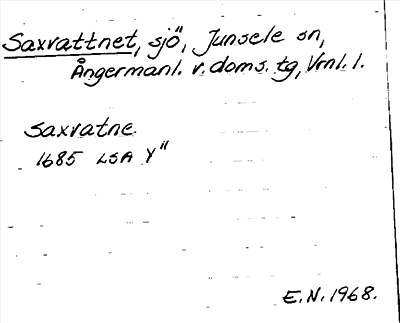 Saxvattnet, sjö", Junsele sn,
Ångermanl. v. doms. tg, Vrnl. l.
Saxvatne
1685 LSA Y"
E.N. 1968.